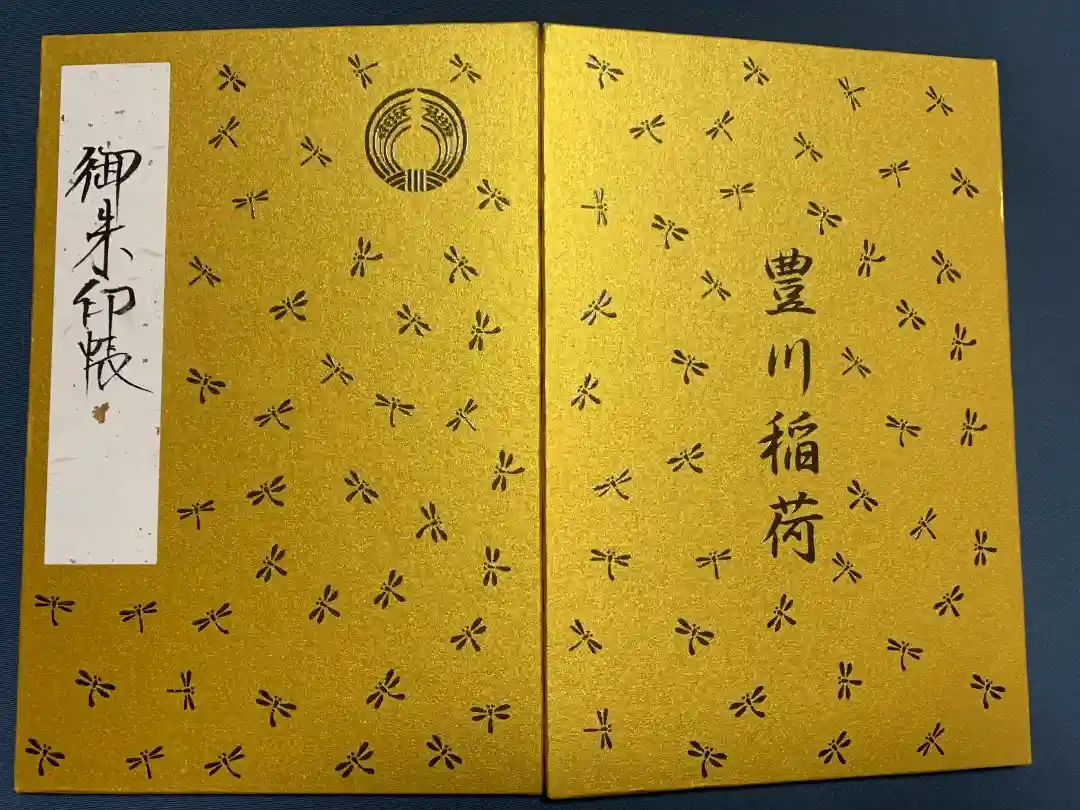 御朱印帳
豊川稲荷